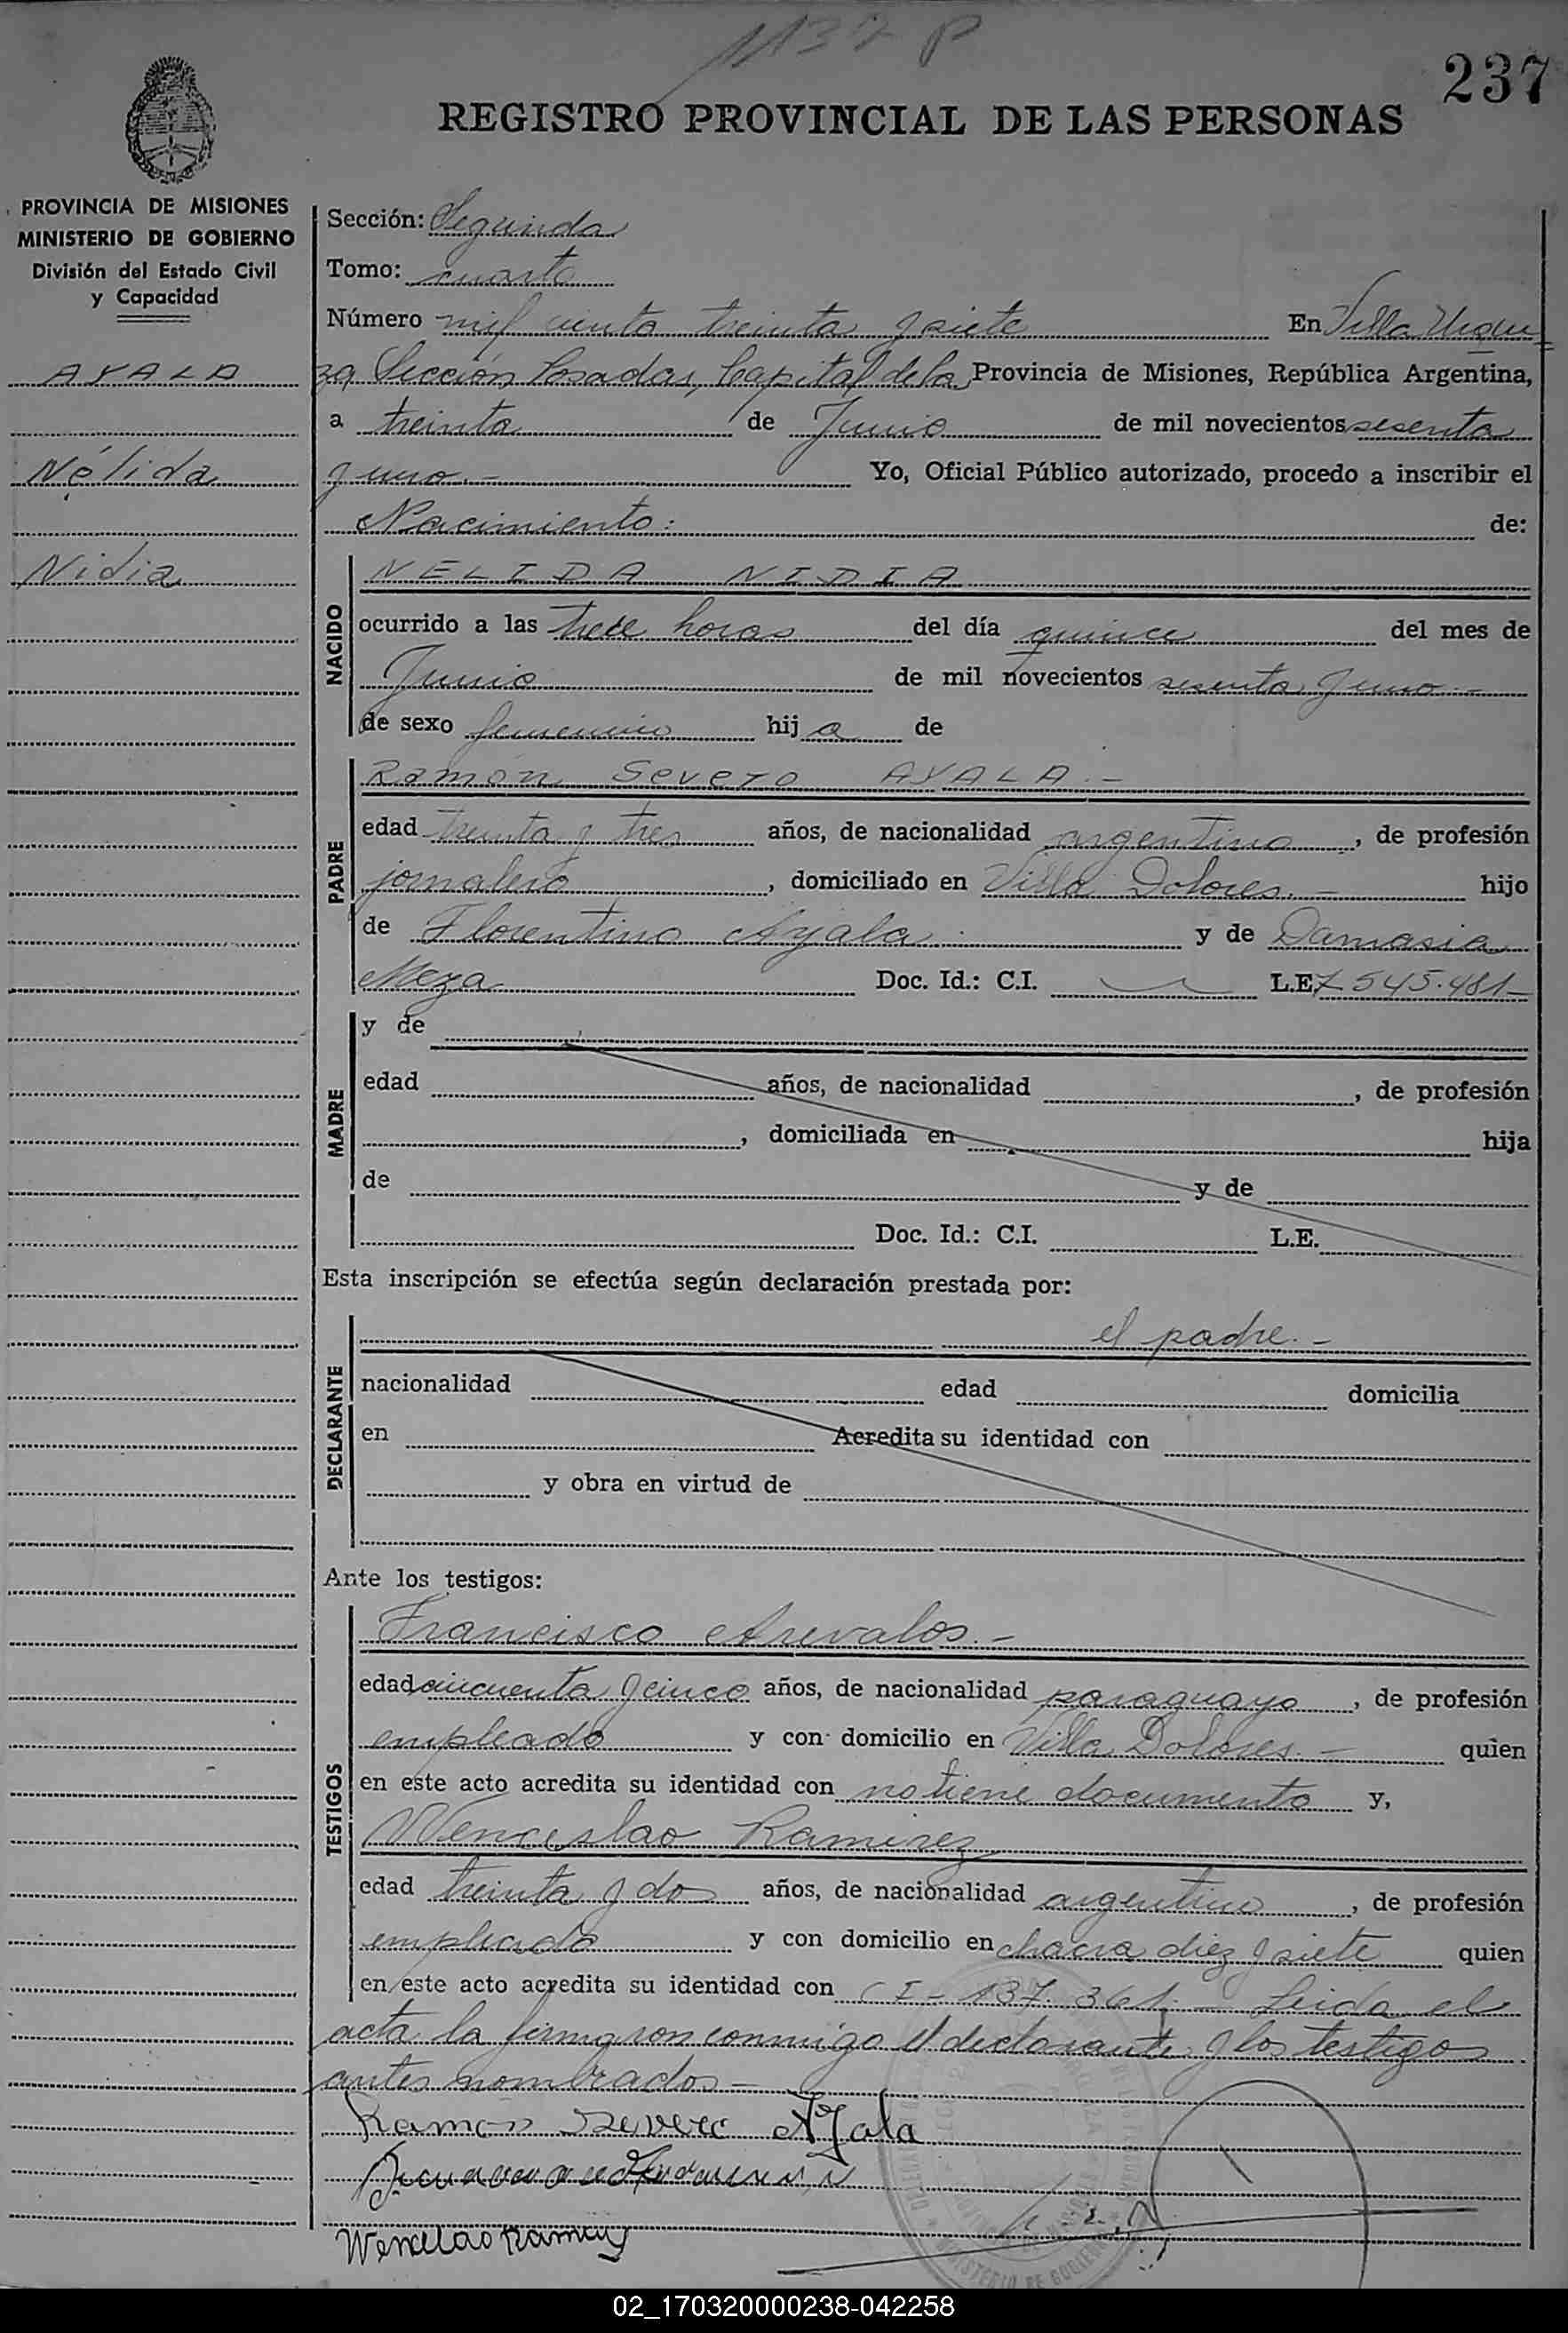 1137 P
237
REGISTRO PROVINCIAL DE LAS PERSONAS
PROVINCIA DE MISIONES
MINISTERIO DE GOBIERNO
División del Estado Civil
y Capacidad
AYALA
Nélida
Nidia
Sección: Segunda
Tomo: cuarto
Número mil ciento treinta y siete En Villa Urqui
za Sección Posadas, Capital de la Provincia de Misiones, República Argentina,
a treinta de Junio de mil novecientos sesenta
y uno.- Yo, Oficial Público autorizado, procedo a inscribir el
Nacimiento: de:
NACIDO
NELIDA NIDIA
ocurrido a las trece horas del día quince del mes de
Junio de mil novecientos sesenta y uno.-
de sexo femenino hija de
PADRE
Ramón Severo AYALA.-
edad treinta y tres años, de nacionalidad argentino, de profesión
jornalero, domiciliado en Villa Dolores.- hijo
de Florentino Ayala y de Damasia
Meza Doc. Id.: C.I. L.E. 7.545.481-
MADRE
y de
edad años, de nacionalidad , de profesión
, domiciliada en hija
de y de
Doc. Id.: C.I. L.E.
Esta inscripción se efectúa según declaración prestada por:
DECLARANTE
el padre.-
nacionalidad edad domicilia
en Acredita su identidad con
y obra en virtud de
Ante los testigos:
TESTIGOS
Francisco Arevalos.-
edad cincuenta y cinco años, de nacionalidad paraguayo, de profesión
empleado y con domicilio en Villa Dolores.- quien
en este acto acredita su identidad con no tiene documento y,
Wenceslao Ramirez
edad treinta y dos años, de nacionalidad argentino, de profesión
empleado y con domicilio en chacra diez y siete quien
en este acto acredita su identidad con CI- 137.361.- Leida el
acta la firmaron conmigo el declarante y los testigos
antes nombrados-
Ramón Severo Ayala
02_170320000238-042258